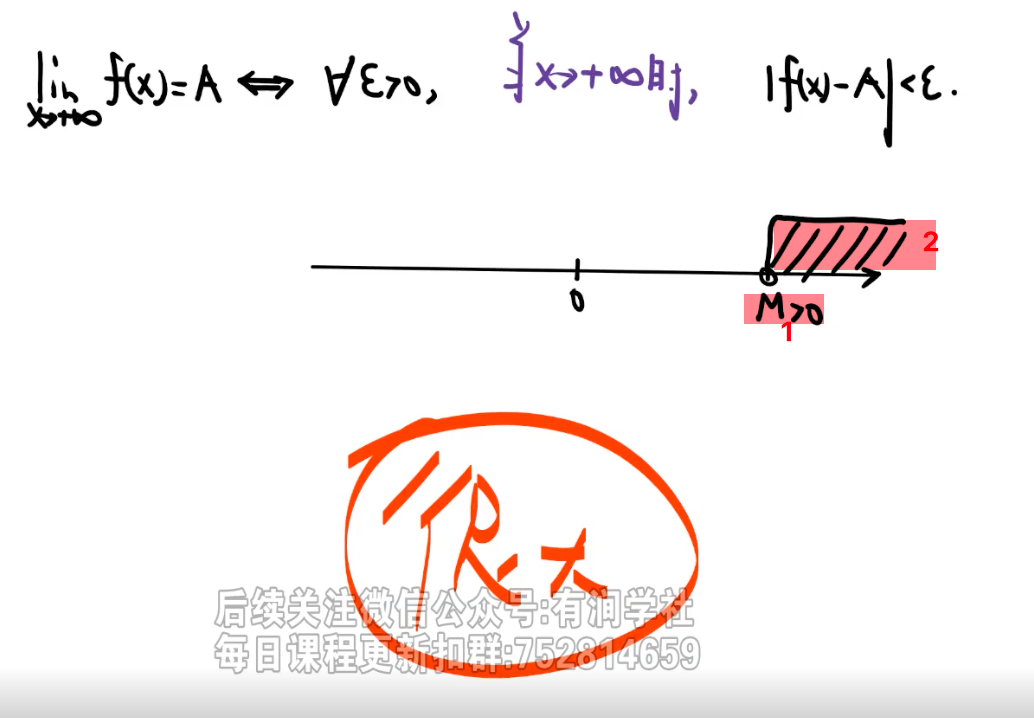 lim f(x)=A ⇔ ∀ε>0, 当x→+∞时, |f(x)-A|<ε.
x→+∞
2
0
M>0
1
很大
后续关注微信公众号:有润学社
每日课程更新扣群:752814659